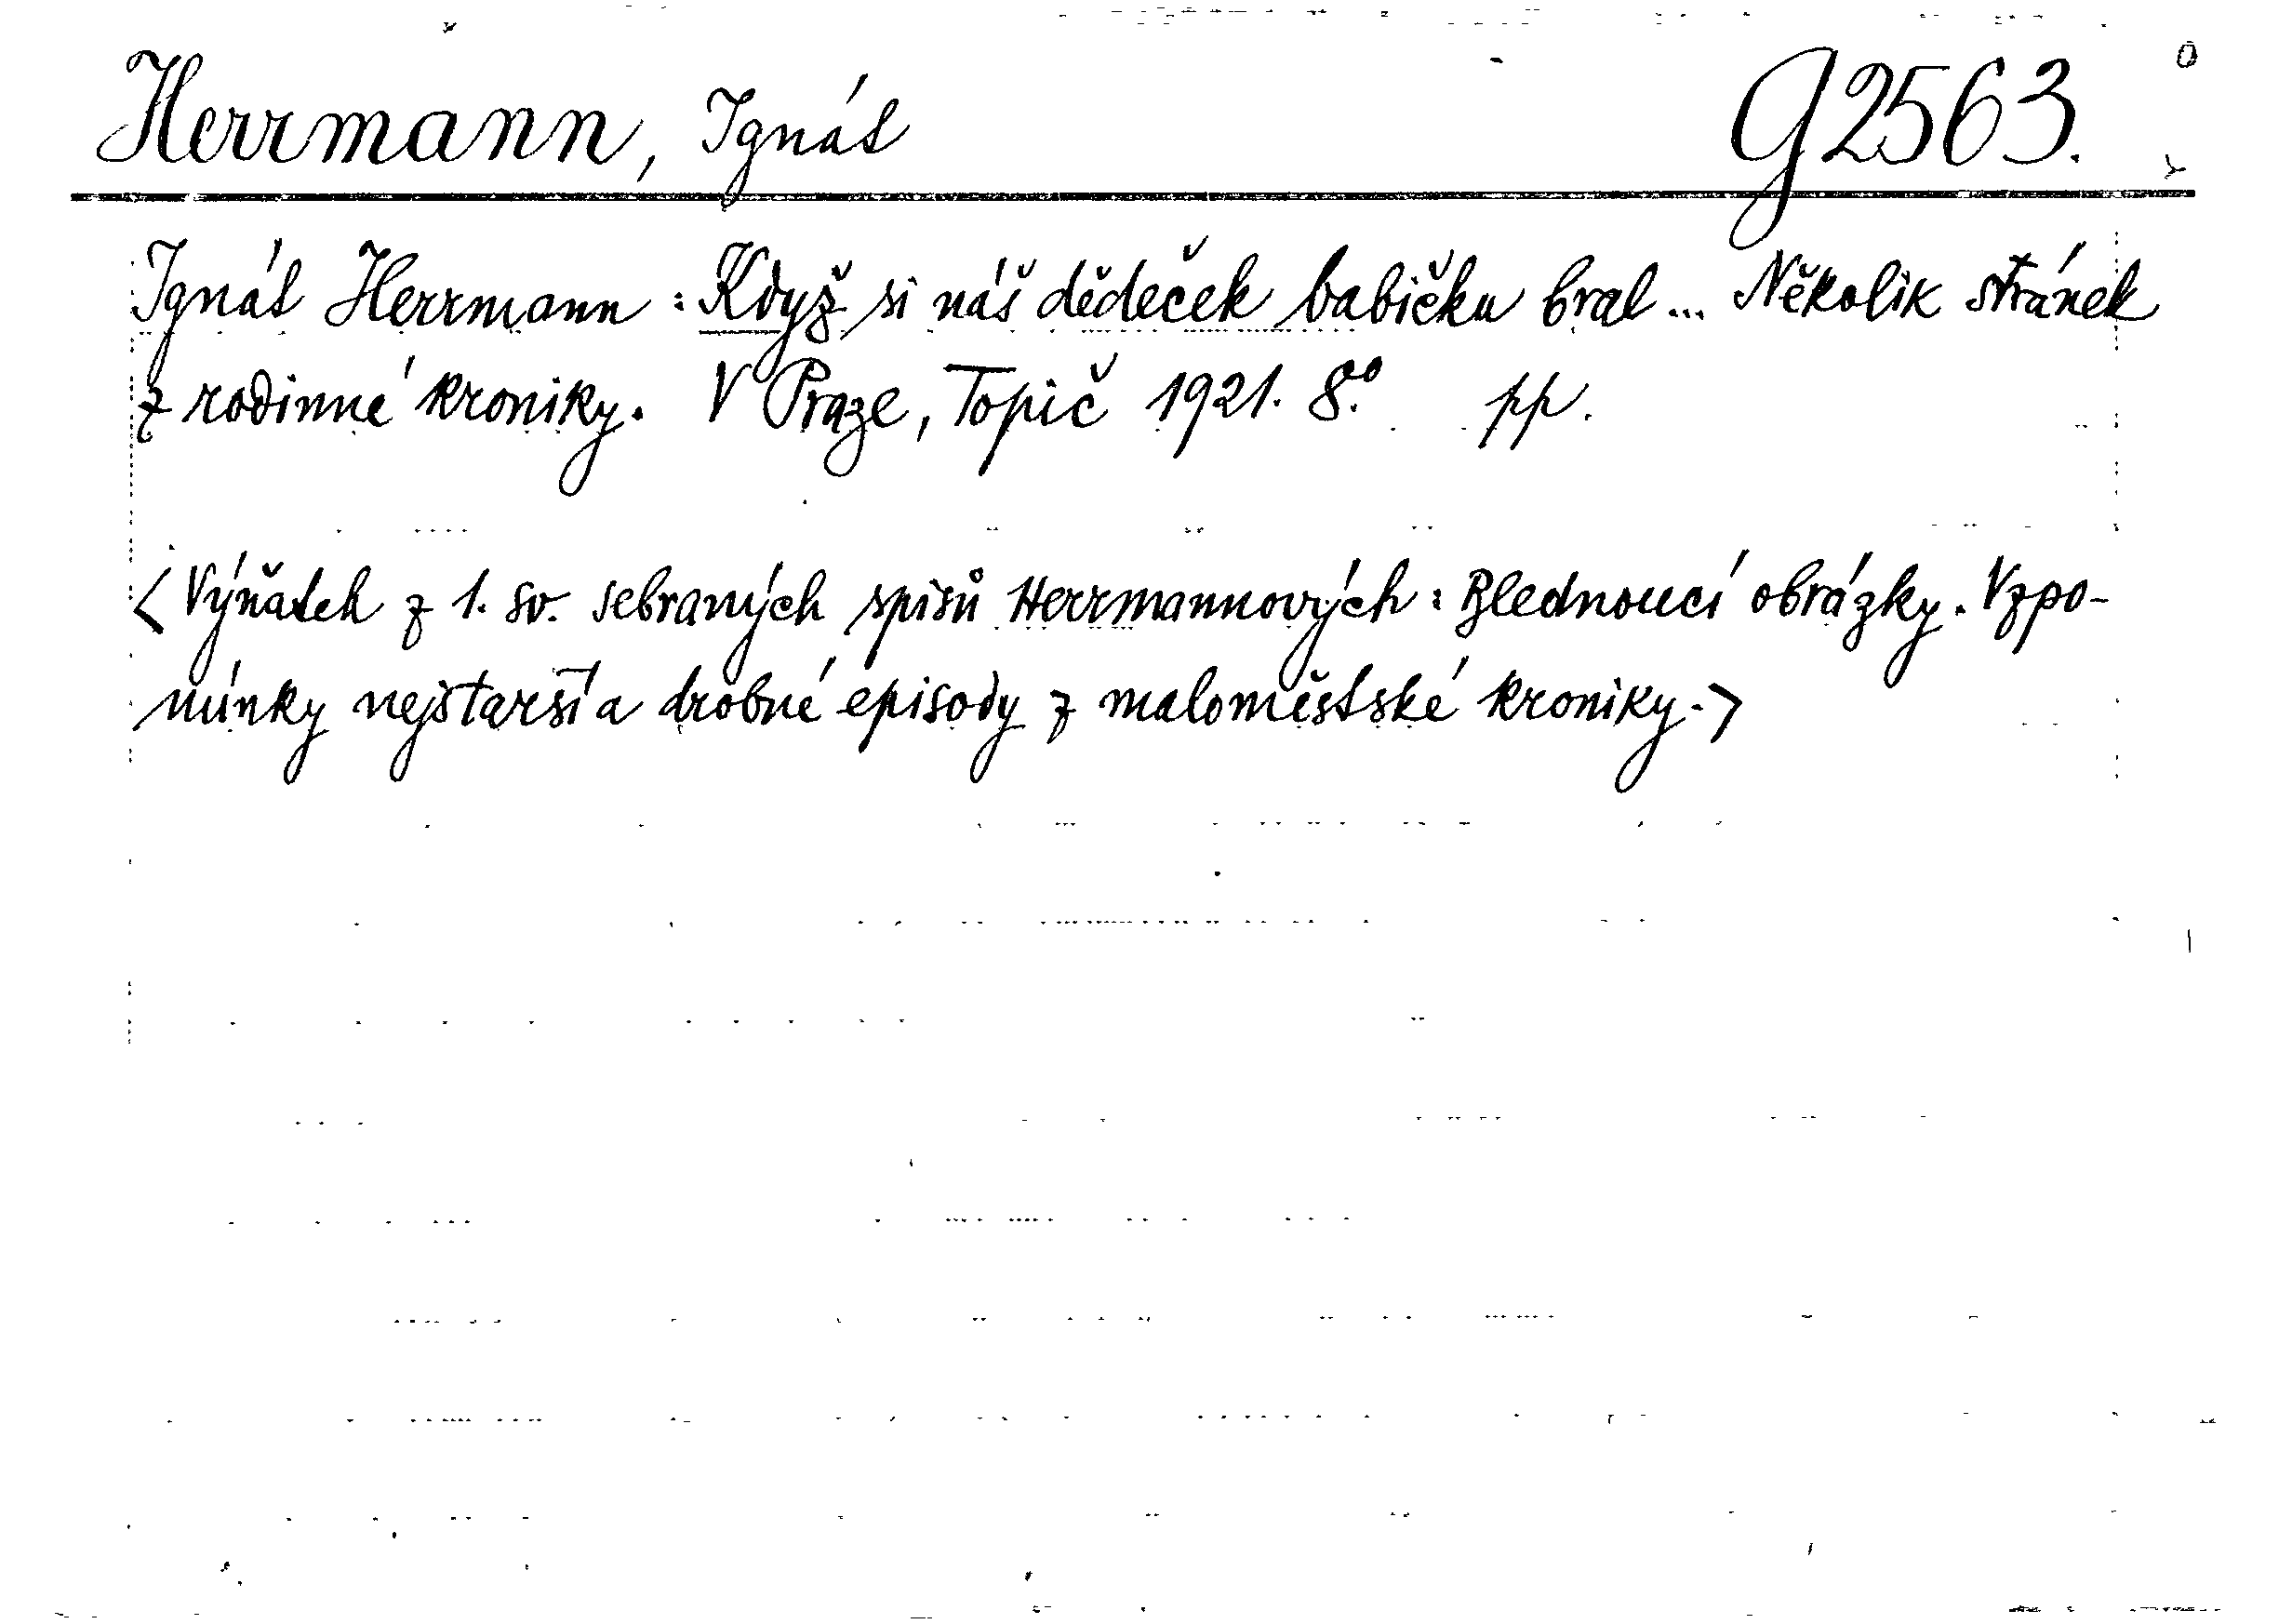 Herrmann, Ignát G2563.
Ignát Herrmann: Když si náš dědeček babičku bral... Několik stránek
z rodinné kroniky. V Praze, Topič 1921. 8.° pp.
<Výňatek z 1. sv. sebraných spisů Herrmannových: Blednoucí obrázky. Vzpo-
mínky nejstarší a drobné episody z maloměstské kroniky.>